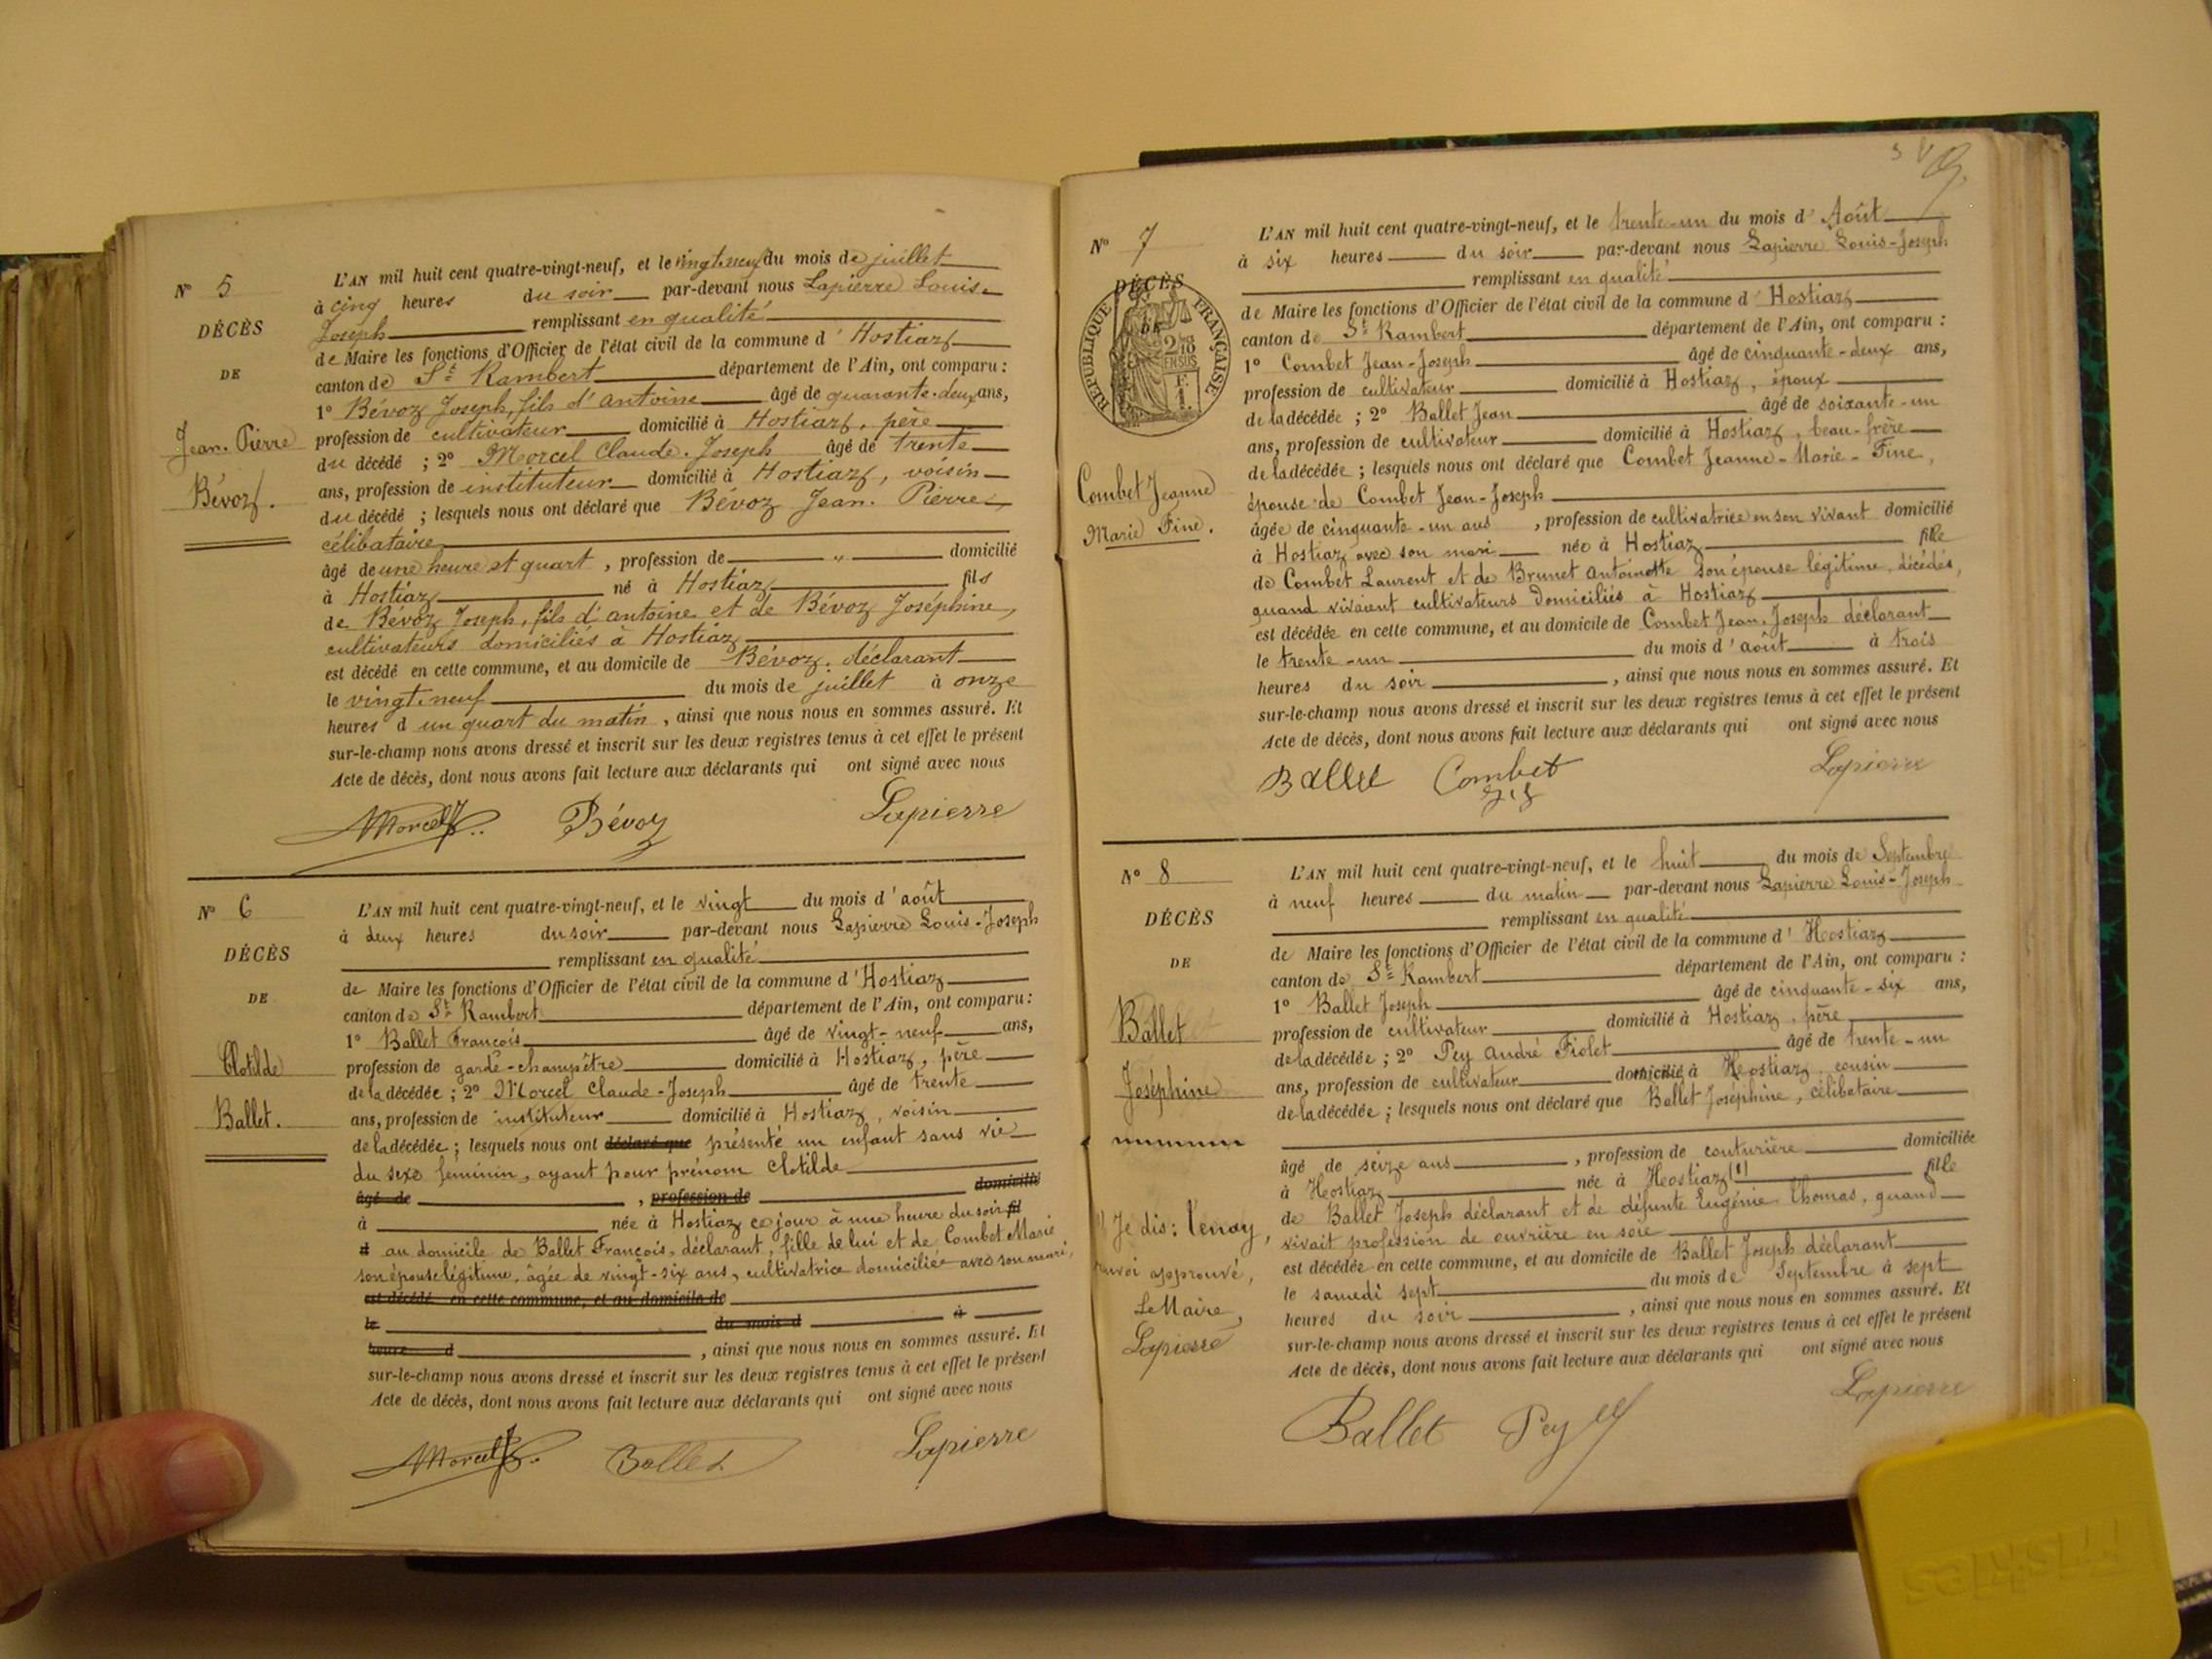 N° 5
DÉCÈS
DE
Jean. Pierre
Bévoz.
L'AN mil huit cent quatre-vingt-neuf, et le vingt-neuf du mois de juillet
à cinq heures du soir par-devant nous Lapierre Louis-
Joseph remplissant en qualité
de Maire les fonctions d'Officier de l'état civil de la commune d'Hostiaz
canton de St Rambert département de l'Ain, ont comparu :
1° Bévoz Joseph, fils d'antoine âgé de quarante-deux ans,
profession de cultivateur domicilié à Hostiaz, père
du décédé ; 2° Morcel Claude-Joseph âgé de trente
ans, profession de instituteur domicilié à Hostiaz, voisin
du décédé ; lesquels nous ont déclaré que Bévoz Jean. Pierre
célibataire
âgé de une heure et quart , profession de " domicilié
à Hostiaz né à Hostiaz fils
de Bévoz Joseph, fils d'antoine et de Bévoz Joséphine,
cultivateurs domiciliés à Hostiaz
est décédé en cette commune, et au domicile de Bévoz, déclarant
le vingt-neuf du mois de juillet à onze
heures d un quart du matin , ainsi que nous nous en sommes assuré. Et
sur-le-champ nous avons dressé et inscrit sur les deux registres tenus à cet effet le présent
Acte de décès, dont nous avons fait lecture aux déclarants qui ont signé avec nous
Morcel Bévoz Lapierre
N° 6
DÉCÈS
DE
Clotilde
Ballet.
L'AN mil huit cent quatre-vingt-neuf, et le vingt du mois d'août
à deux heures du soir par-devant nous Lapierre Louis-Joseph
remplissant en qualité
de Maire les fonctions d'Officier de l'état civil de la commune d'Hostiaz
canton de St Rambert département de l'Ain, ont comparu :
1° Ballet François âgé de vingt-neuf ans,
profession de garde-champêtre domicilié à Hostiaz, père
de la décédée ; 2° Morcel Claude-Joseph âgé de trente
ans, profession de instituteur domicilié à Hostiaz, voisin
de la décédée ; lesquels nous ont déclaré que présenté un enfant sans vie
du sexe féminin, ayant pour prénom Clotilde
âgé de , profession de domicilié
à née à Hostiaz ce jour à une heure du soir fil
d au domicile de Ballet François, déclarant, fille de lui et de Combet Marie
son épouse légitime, âgée de vingt-six ans, cultivatrice domiciliée avec son mari,
est décédé en cette commune, et au domicile de
le du mois d à
heure d , ainsi que nous nous en sommes assuré. Et
sur-le-champ nous avons dressé et inscrit sur les deux registres tenus à cet effet le présent
Acte de décès, dont nous avons fait lecture aux déclarants qui ont signé avec nous
Morcel Ballet Lapierre
N° 7
DÉCÈS
DE
RÉPUBLIQUE FRANÇAISE
2/10 EN SUS
Combet Jeanne
Marie Fine.
L'AN mil huit cent quatre-vingt-neuf, et le trente-un du mois d'Août
à six heures du soir par-devant nous Lapierre Louis-Joseph
remplissant en qualité
de Maire les fonctions d'Officier de l'état civil de la commune d'Hostiaz
canton de St Rambert département de l'Ain, ont comparu :
1° Combet Jean-Joseph âgé de cinquante-deux ans,
profession de cultivateur domicilié à Hostiaz, époux
de la décédée ; 2° Ballet Jean âgé de soixante-un
ans, profession de cultivateur domicilié à Hostiaz, beau-frère
de la décédée ; lesquels nous ont déclaré que Combet Jeanne-Marie-Fine,
épouse de Combet Jean-Joseph
âgée de cinquante-un ans , profession de cultivatrice en son vivant domicilié
à Hostiaz avec son mari née à Hostiaz fille
de Combet Laurent et de Brunet Antoinette son épouse légitime, décédés,
quand vivaient cultivateurs domiciliés à Hostiaz
est décédée en cette commune, et au domicile de Combet Jean-Joseph déclarant
le trente-un du mois d'août à trois
heures du soir , ainsi que nous nous en sommes assuré. Et
sur-le-champ nous avons dressé et inscrit sur les deux registres tenus à cet effet le présent
Acte de décès, dont nous avons fait lecture aux déclarants qui ont signé avec nous
Ballet Combet Lapierre
N° 8
DÉCÈS
DE
Ballet
Joséphine
L'AN mil huit cent quatre-vingt-neuf, et le huit du mois de Septembre
à neuf heures du matin par-devant nous Lapierre Louis-Joseph
remplissant en qualité
de Maire les fonctions d'Officier de l'état civil de la commune d'Hostiaz
canton de St Rambert département de l'Ain, ont comparu :
1° Ballet Joseph âgé de cinquante-six ans,
profession de cultivateur domicilié à Hostiaz, père
de la décédée ; 2° Pey André Fiolet âgé de trente-un
ans, profession de cultivateur domicilié à Hostiaz, cousin
de la décédée ; lesquels nous ont déclaré que Ballet Joséphine, célibataire
âgé de seize ans , profession de couturière domiciliée
à Hostiaz née à Hostiaz (1) fille
de Ballet Joseph déclarant et de défunte Eugénie Thomas, quand
vivait profession de ouvrière en soie
est décédée en cette commune, et au domicile de Ballet Joseph déclarant
le samedi sept du mois de Septembre à sept
heures du soir , ainsi que nous nous en sommes assuré. Et
sur-le-champ nous avons dressé et inscrit sur les deux registres tenus à cet effet le présent
Acte de décès, dont nous avons fait lecture aux déclarants qui ont signé avec nous
Je dis: Tenay,
renvoi approuvé,
Le Maire,
Lapierre
Ballet Pey Lapierre
Friskies